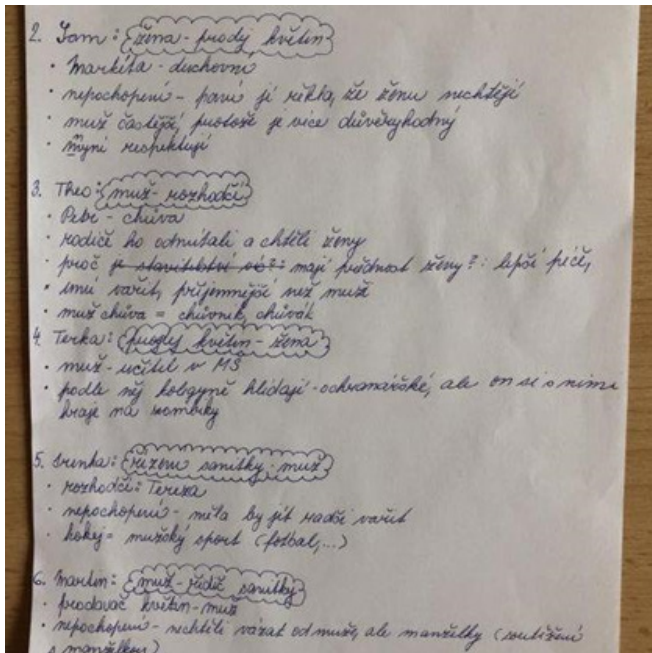 2. Sam: žena - prodej květin
· Markéta - duchovní
· nepochopení - paní jí řekla, že ženu nechtějí
· muž častější, protože je více důvěryhodný
· nyní respektují
3. Theo: muž - rozhodčí
· Petr - chůva
· rodiče ho odmítali a chtěli ženy
· proč je stavitelství mají přednost ženy?: lepší péče,
· umí vařit, příjemnější než muži
· muž chůva = chůvník, chůvák
4. Terka: prodej květin - žena
· muž - učitel v MŠ
· podle něj kolegyně hlídají - ochranářské, ale on si s nimi
hraje na zombíky
5. Irenka: řízení sanitky - muž
· rozhodčí: Tereza
· nepochopení - měla by jít radši vařit
· hokej = mužský sport (fotbal,...)
6. Martin: muž - řidič sanitky
· prodavač květin - muž
· nepochopení - nechtěli vázat od muže, ale manželky (soutěžení
s manželkou)